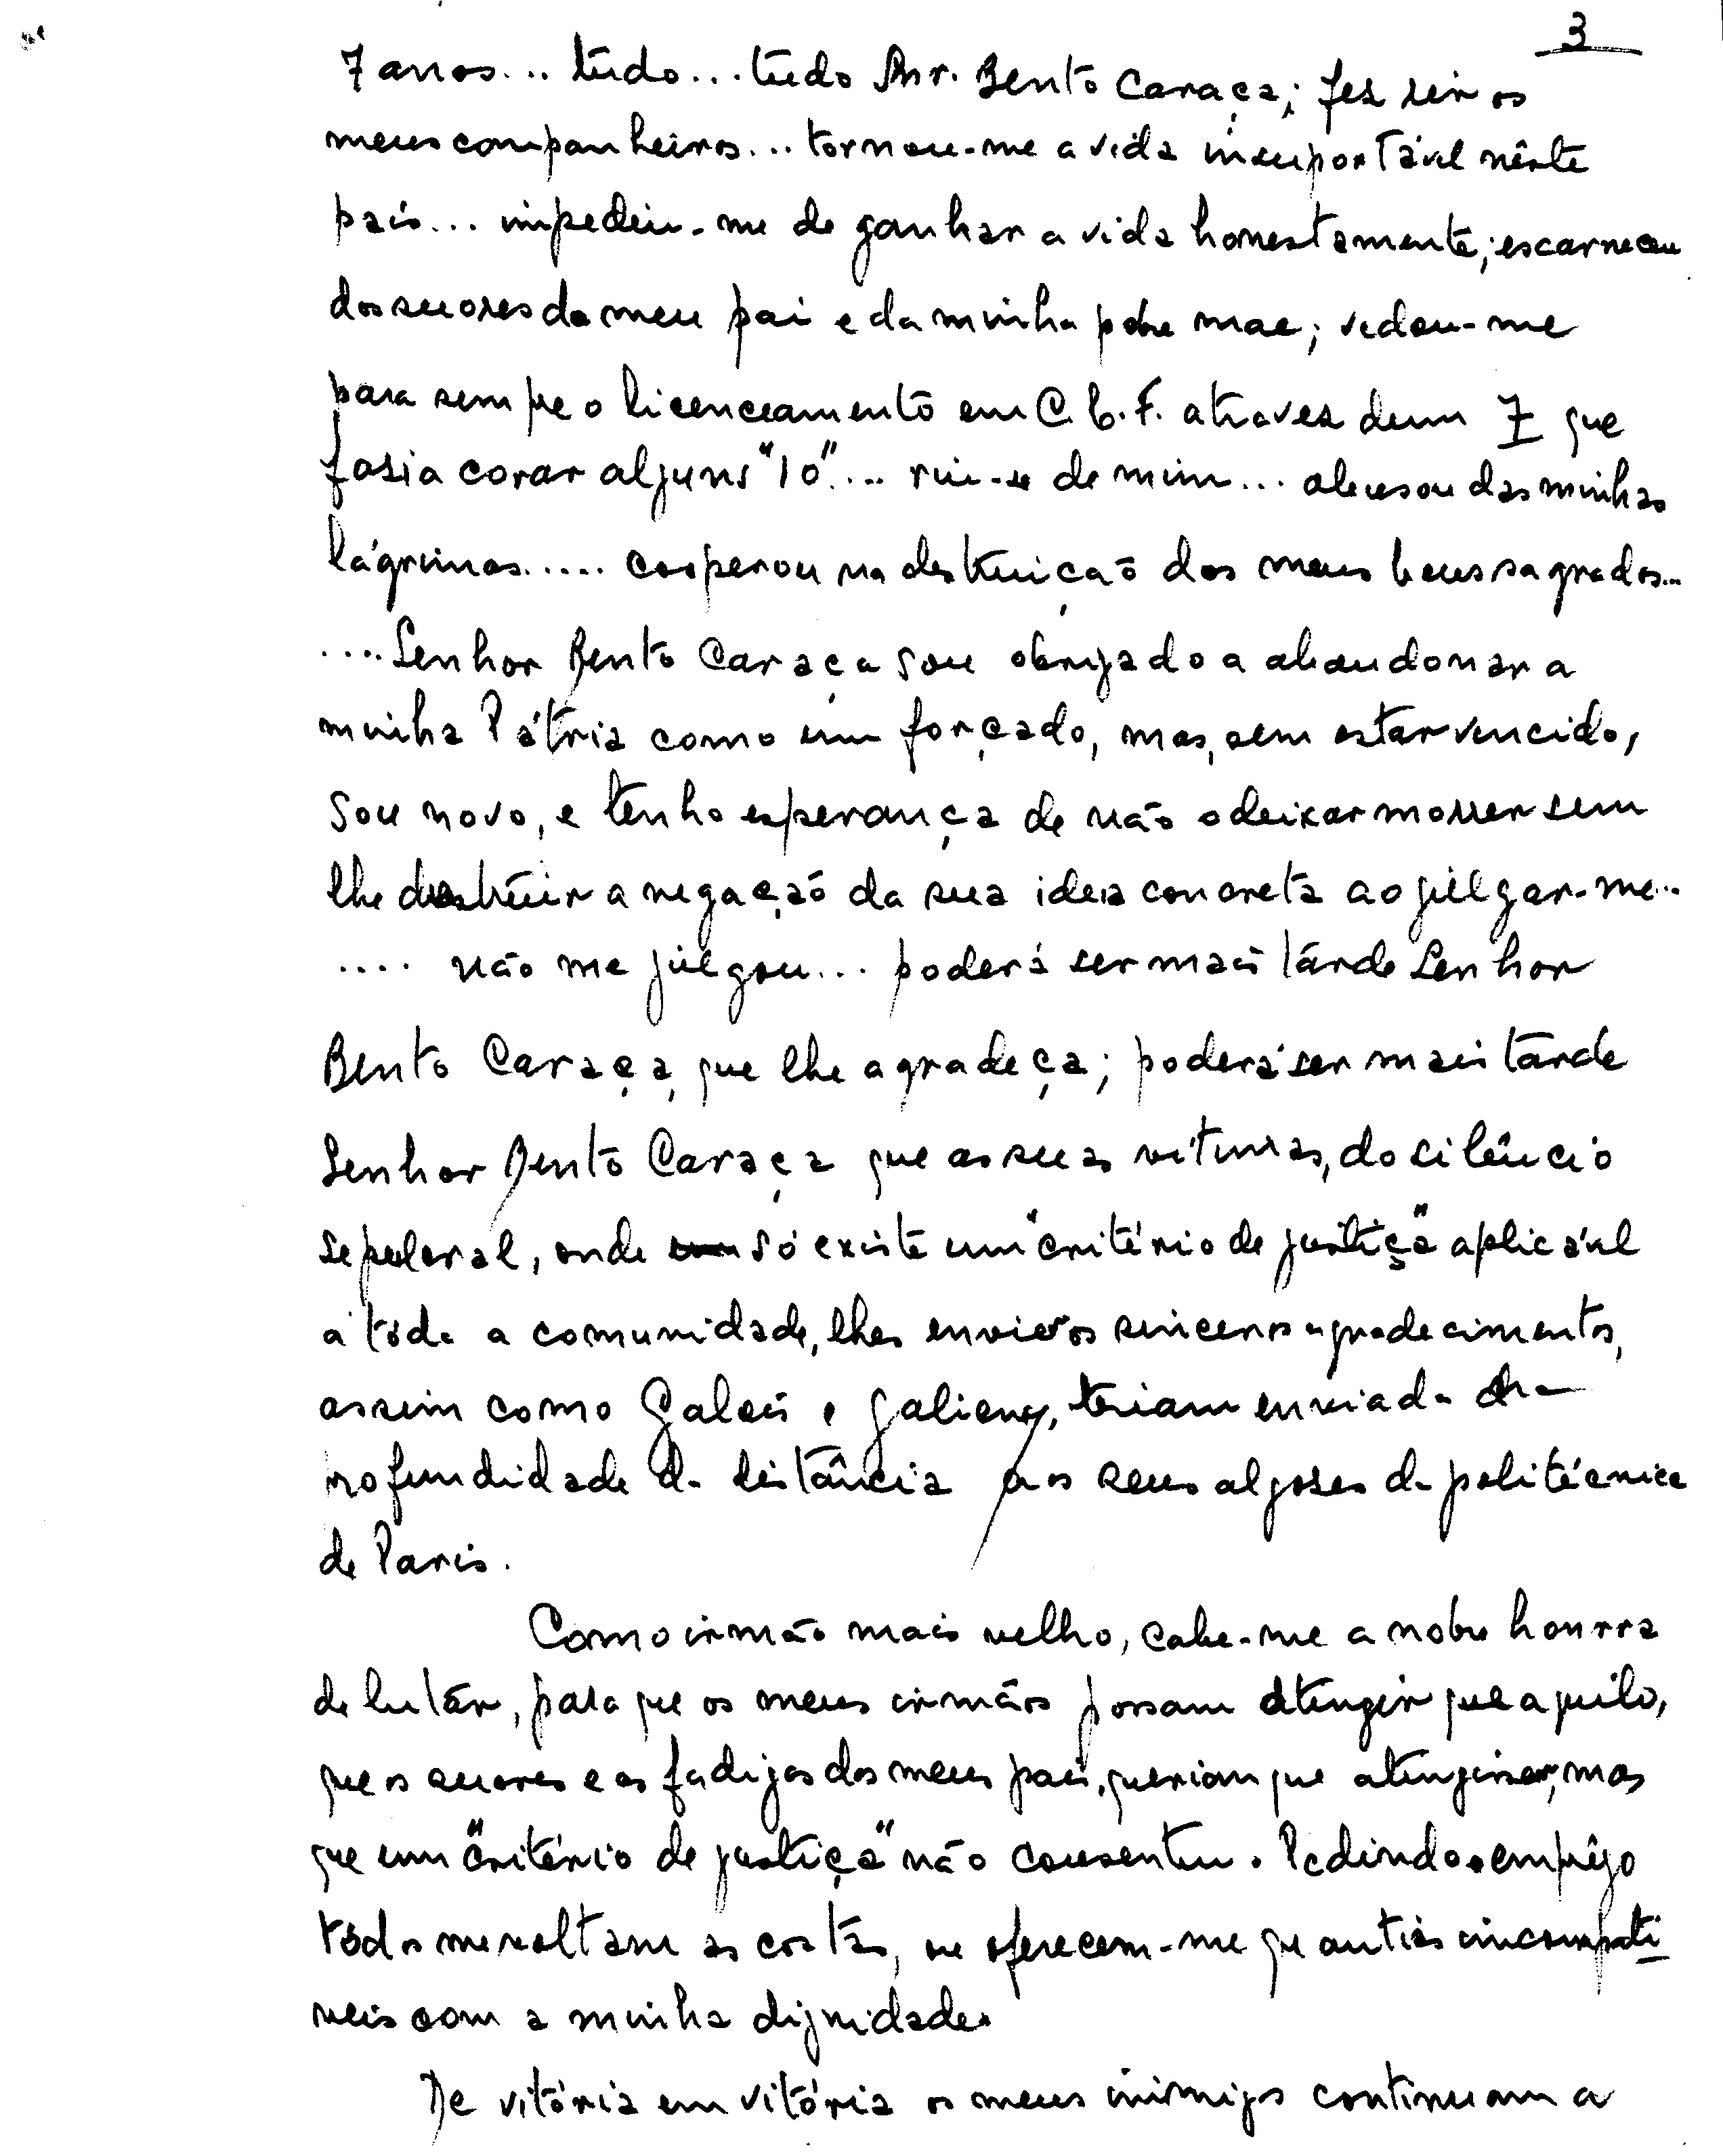 3
7 anos... tudo... tudo Snr. Bento Caraça; fez rir os
meus companheiros... tornou-me a vida insuportável nêste
país... impediu-me de ganhar a vida honestamente; escarneceu
dos suores do meu pai e da minha pobre mae; vedou-me
para sempre o licenceamento em C. E. F. atravez dum 7 que
fasia corar alguns "10".... riu-se de mim... abusou das minhas
lágrimas..... cooperou na destruição dos meus bens sagrados...
.... Senhor Bento Caraça sou obrigado a abandonar a
minha Pátria como um forçado, mas, sem estar vencido,
sou novo, e tenho esperança de não o deixar morrer sem
lhe destruir a negação da sua ideia concreta ao julgar-me...
.... não me julgou... poderá ser mais tárde Senhor
Bento Caraça, que lhe agradeça; poderá ser mais tarde
Senhor Bento Caraça que as suas vitimas, do silêncio
sepulcral, onde só existe um "critério de justiça" aplicável
a tôda a comunidade, lhes envie os sinceros agradecimentos,
assim como Galois e teriam enviado da
profundidade da distância aos seus algozes da politécnica
de Paris.
Como irmão mais velho, cabe-me a nobre honrra
de lutar, para que os meus irmãos possam atengir que aquilo,
que os suores e as fadigas dos meus pais, queriam que atingisse, mas
que um "critério de justiça" não consentiu. Pedindo emprêgo
tôdos me voltam as costas, ou oferecem-me quantias incompati
veis com a minha dignidade.
De vitória em vitória os meus inimigos continuam a